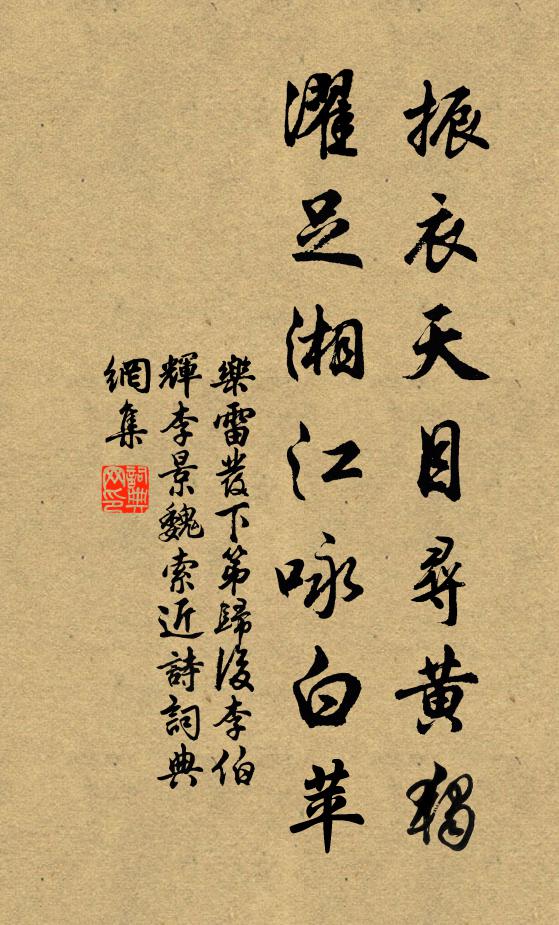 振衣天目尋黄獨
濯足湘江咏白苹
樂雷發下第歸後李伯
輝李景魏索近詩詞典
網集
詞典
网印